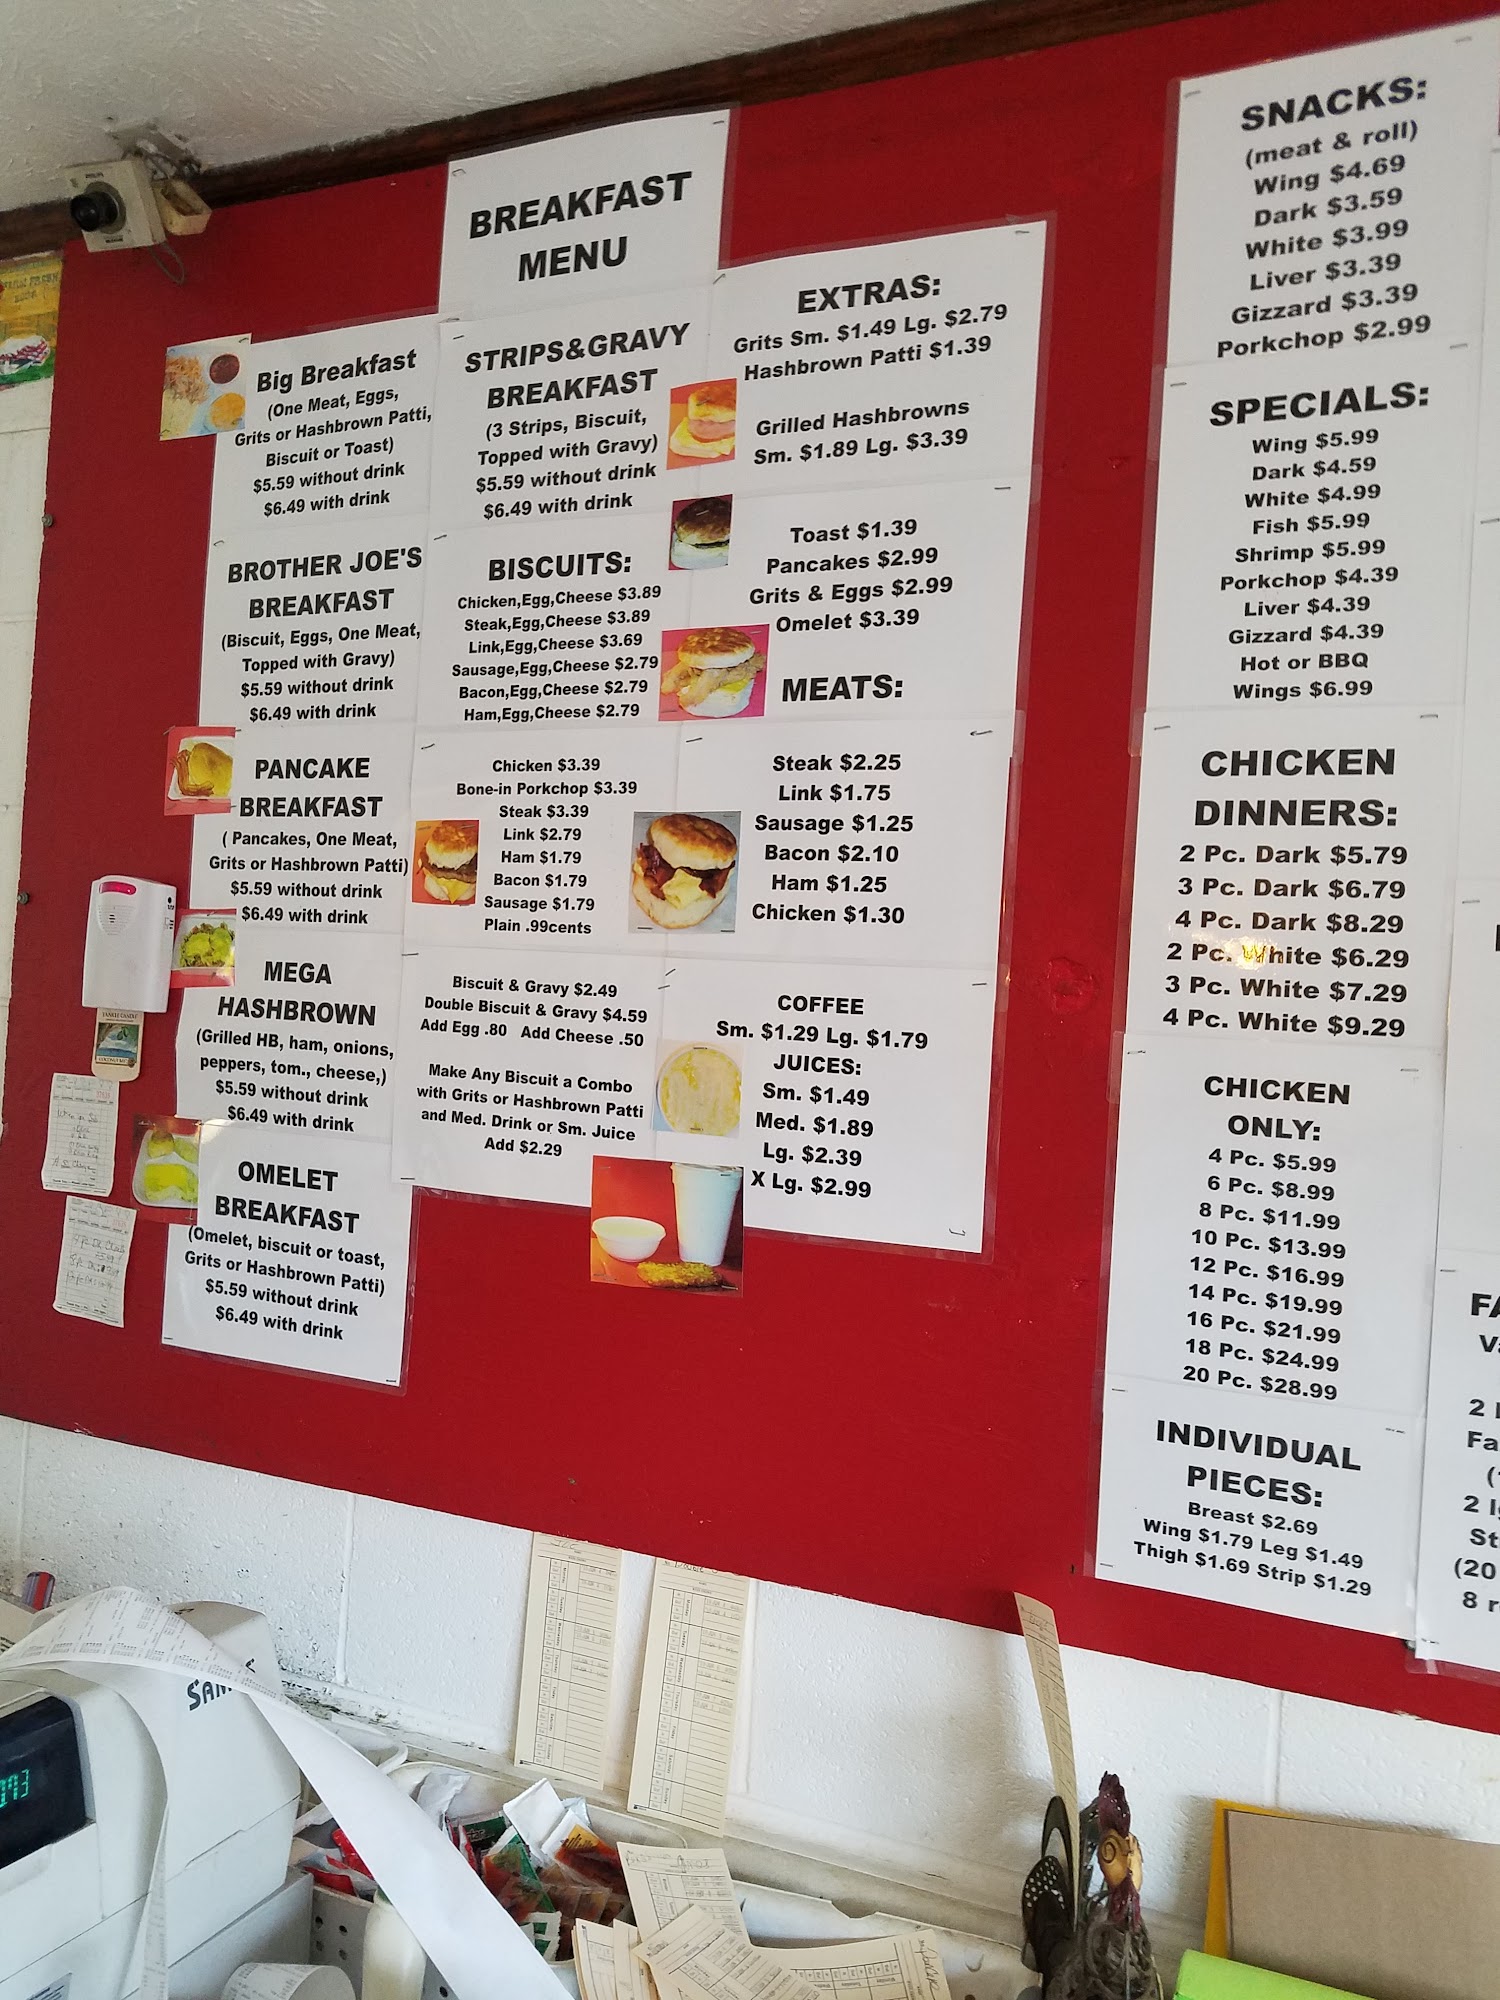 BREAKFAST
MENU
Big Breakfast
(One Meat, Eggs,
Grits or Hashbrown Patti,
Biscuit or Toast)
$5.59 without drink
$6.49 with drink
BROTHER JOE'S
BREAKFAST
(Biscuit, Eggs, One Meat,
Topped with Gravy)
$5.59 without drink
$6.49 with drink
PANCAKE
BREAKFAST
( Pancakes, One Meat,
Grits or Hashbrown Patti)
$5.59 without drink
$6.49 with drink
MEGA
HASHBROWN
(Grilled HB, ham, onions,
peppers, tom., cheese,)
$5.59 without drink
$6.49 with drink
OMELET
BREAKFAST
(Omelet, biscuit or toast,
Grits or Hashbrown Patti)
$5.59 without drink
$6.49 with drink
STRIPS&GRAVY
BREAKFAST
(3 Strips, Biscuit,
Topped with Gravy)
$5.59 without drink
$6.49 with drink
BISCUITS:
Chicken,Egg,Cheese $3.89
Steak,Egg,Cheese $3.89
Link,Egg,Cheese $3.69
Sausage,Egg,Cheese $2.79
Bacon,Egg,Cheese $2.79
Ham,Egg,Cheese $2.79
Chicken $3.39
Bone-in Porkchop $3.39
Steak $3.39
Link $2.79
Ham $1.79
Bacon $1.79
Sausage $1.79
Plain .99cents
Biscuit & Gravy $2.49
Double Biscuit & Gravy $4.59
Add Egg .80 Add Cheese .50
Make Any Biscuit a Combo
with Grits or Hashbrown Patti
and Med. Drink or Sm. Juice
Add $2.29
EXTRAS:
Grits Sm. $1.49 Lg. $2.79
Hashbrown Patti $1.39
Grilled Hashbrowns
Sm. $1.89 Lg. $3.39
Toast $1.39
Pancakes $2.99
Grits & Eggs $2.99
Omelet $3.39
MEATS:
Steak $2.25
Link $1.75
Sausage $1.25
Bacon $2.10
Ham $1.25
Chicken $1.30
COFFEE
Sm. $1.29 Lg. $1.79
JUICES:
Sm. $1.49
Med. $1.89
Lg. $2.39
X Lg. $2.99
SNACKS:
(meat & roll)
Wing $4.69
Dark $3.59
White $3.99
Liver $3.39
Gizzard $3.39
Porkchop $2.99
SPECIALS:
Wing $5.99
Dark $4.59
White $4.99
Fish $5.99
Shrimp $5.99
Porkchop $4.39
Liver $4.39
Gizzard $4.39
Hot or BBQ
Wings $6.99
CHICKEN
DINNERS:
2 Pc. Dark $5.79
3 Pc. Dark $6.79
4 Pc. Dark $8.29
2 Pc. White $6.29
3 Pc. White $7.29
4 Pc. White $9.29
CHICKEN
ONLY:
4 Pc. $5.99
6 Pc. $8.99
8 Pc. $11.99
10 Pc. $13.99
12 Pc. $16.99
14 Pc. $19.99
16 Pc. $21.99
18 Pc. $24.99
20 Pc. $28.99
INDIVIDUAL
PIECES:
Breast $2.69
Wing $1.79 Leg $1.49
Thigh $1.69 Strip $1.29
YANKEE CANDLE